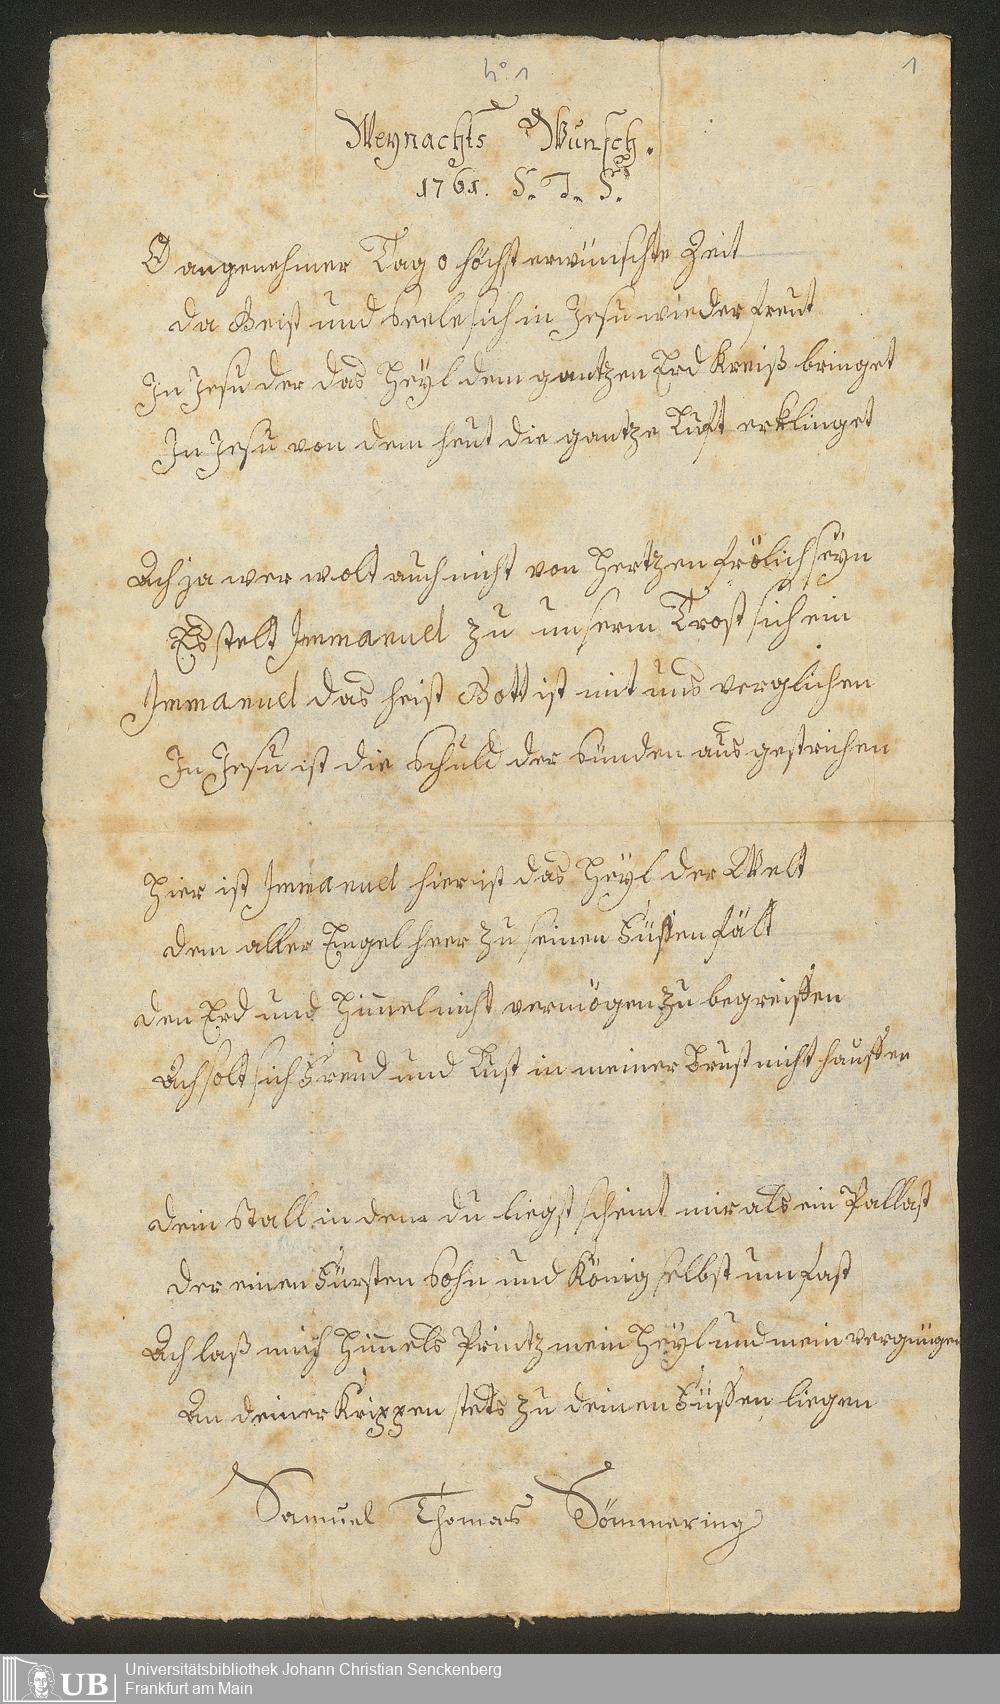 No. 1
1
Weynachts Wunsch.
1761. S. T. S.
O angenehmer Tag o höchst erwünschte Zeit
da Geist und Seele sich in Jesu wieder freut
In Jesu der das Heyl dem gantzen Erd Kreiß bringet
In Jesu von dem heut die gantze Luft erklinget
Ach ja wer wolt auch nicht von Hertzen frölich seyn
Es stelt Immanuel zu unserm Trost sich ein
Immanuel das heist Gott ist mit uns verglichen
In Jesu ist die Schuld der Sünden aus gestrichen
Hier ist Immanuel hier ist das Heyl der Welt
dem aller Engel heer zu seinen Füssen fält
den Erd und Himel nicht vermögen zu begreiffen
Ach solt sich Freud und Lust in meiner Brust nicht hauffen
dein Stall in dem du liegst scheint mir als ein Pallast
der einen Fürsten Sohn und König selbst umfast
Ach laß mich Himels Printz mein Heyl und mein vergnügen
An deiner Krippen stets zu deinen Füssen liegen
Samuel Thomas Sömmering
UB
Universitätsbibliothek Johann Christian Senckenberg
Frankfurt am Main